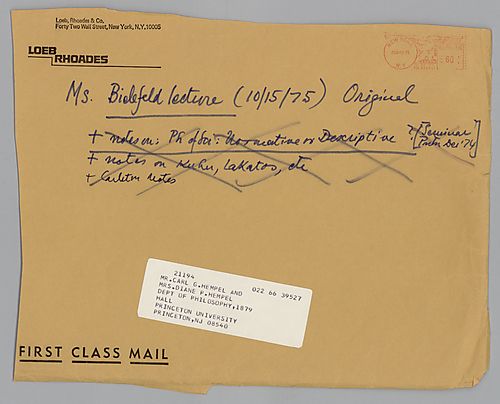 Loeb, Rhoades & Co.
Forty Two Wall Street, New York, N.Y. 10005
LOEB
RHOADES
Ms. Bielefeld lecture (10/15/75) Original
+ notes on: Ph of Sci: Normative or Descriptive? [Seminar
Dec '74]
+ notes on Kuhn, Lakatos, etc
+ Carleton notes
21194
MR. CARL G. HEMPEL AND 022 66 39527
MRS. DIANE P. HEMPEL
DEPT OF PHILOSOPHY, 1879
HALL
PRINCETON UNIVERSITY
PRINCETON, NJ 08540
FIRST CLASS MAIL